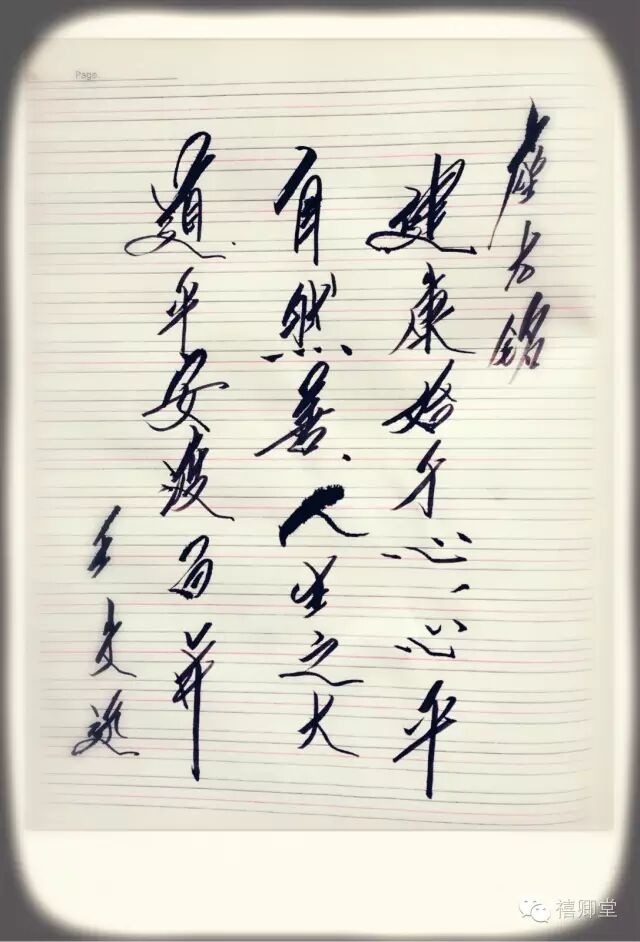 Page.
座右铭
建康始于心、心平
自然善、人生之大
道、平安渡百年
禧卿堂